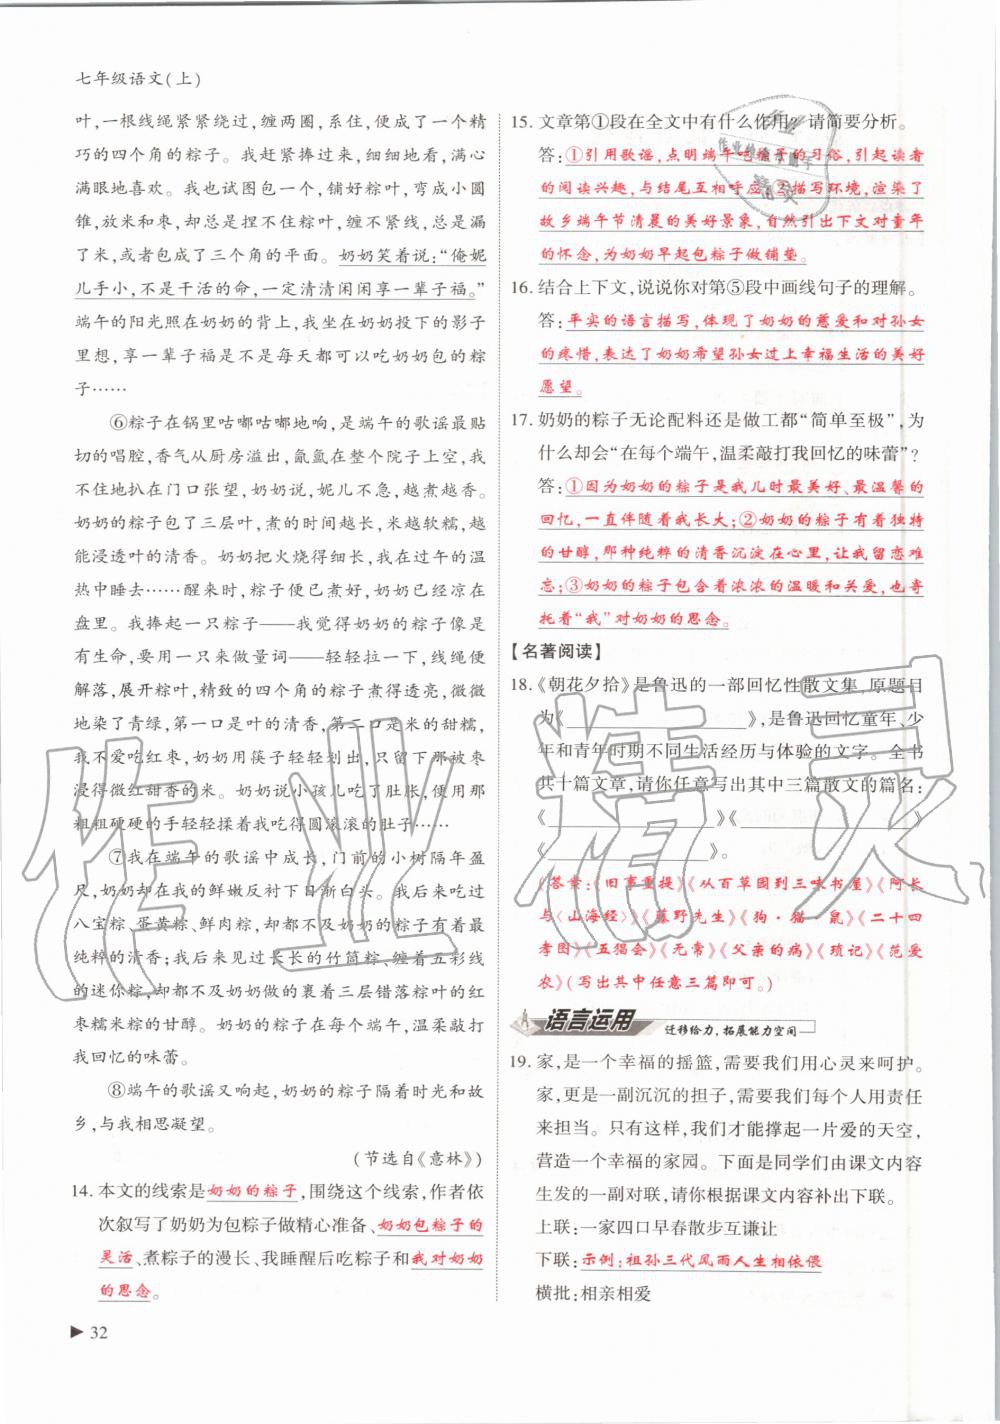 七年级语文(上)
叶,一根线绳紧紧绕过,缠两圈,系住,便成了一个精
巧的四个角的粽子。我托捧过来,细细地看,满心
满眼地喜欢。我也试图包一个,铺好粽叶,弯成小圆
锥,放米和枣,却总是捏不住粽叶,缠不紧线绳,总是漏
了米,或者包成了三个角的粽子。奶奶笑着说:“俺妮
儿手小,不是干活的命,一定清清闲闲享一辈子福。”
端午的阳光照在奶奶的背上,我坐在奶奶投下的影子
里想,享一辈子福是不是每天都可以吃奶奶包的粽
子……
⑥粽子在锅里咕嘟咕嘟地响,是端午的歌谣最贴
切的唱腔,香气从厨房溢出,氤氲在整个院子上空,我
不住地扒在门口张望,奶奶说,妮儿不急,越煮越香。
奶奶的粽子包了三层叶,煮的时间越长,米越软糯,越
能浸透叶的清香。奶奶把火烧得细长,我在过午的温
热中睡去……醒来时,粽子便已煮好,奶奶已经晾在
盘里。我捧起一只粽子——我觉得奶奶的粽子像是
有生命,要用一只来做量词——轻轻拉一下,线绳便
解落,展开粽叶,精致的四个角的粽子煮得透亮,微微
地染了青绿,第一口是叶的清香,第二口是米的甜糯,
我不爱吃红枣,奶奶用筷子轻轻划出,只留下被红枣
浸得微红甜香的米。奶奶说小孩儿吃了肚胀,便用那
粗粗硬硬的手轻轻揉着我吃得圆滚滚的肚子……
⑦我在端午的歌谣中成长,门前的小树隔年盈
尺,奶奶却在我的鲜嫩反衬下日渐白头。我后来吃过
八宝粽、蛋黄粽、鲜肉粽,却都不及奶奶的粽子有着最
纯粹的清香;我后来见过长长的竹筒粽、缠着五彩线
的迷你粽,却都不及奶奶做的裹着三层错落粽叶的红
枣糯米粽的甘醇。奶奶的粽子在每个端午,温柔敲打
我回忆的味蕾。
⑧端午的歌谣又响起,奶奶的粽子隔着时光和故
乡,与我相思凝望。
(节选自《意林》)
14. 本文的线索是奶奶的粽子,围绕这个线索,作者依
次叙写了奶奶为包粽子做精心准备、奶奶包粽子的
灵活、煮粽子的漫长、我睡醒后吃粽子和我对奶奶
的思念。
▶ 32
15. 文章第①段在全文中有什么作用?请简要分析。
答:①引用歌谣,点明端午吃粽子的习俗,引起读者
的阅读兴趣,与结尾互相呼应;②描写环境,渲染了
故乡端午节清晨的美好景象,自然引出下文对童年
的怀念,为奶奶早起包粽子做铺垫。
16. 结合上下文,说说你对第⑤段中画线句子的理解。
答:平实的语言描写,体现了奶奶的慈爱和对孙女
的疼惜,表达了奶奶希望孙女过上幸福生活的美好
愿望。
17. 奶奶的粽子无论配料还是做工都“简单至极”,为
什么却会“在每个端午,温柔敲打我回忆的味蕾”?
答:①因为奶奶的粽子是我儿时最美好、最温馨的
回忆,一直伴随着我长大;②奶奶的粽子有着独特
的甘醇,那种纯粹的清香沉淀在心里,让我留恋难
忘;③奶奶的粽子包含着浓浓的温暖和关爱,也寄
托着“我”对奶奶的思念。
【名著阅读】
18.《朝花夕拾》是鲁迅的一部回忆性散文集,原题目
为《________》,是鲁迅回忆童年、少
年和青年时期不同生活经历与体验的文字。全书
共十篇文章,请你任意写出其中三篇散文的篇名:
《________》《________
________》《________》。
(答案:《旧事重提》《从百草园到三味书屋》《阿长
与〈山海经〉》《藤野先生》《狗·猫·鼠》《二十四
孝图》《五猖会》《无常》《父亲的病》《琐记》《范爱
农》(写出其中任意三篇即可。)
语言运用 迁移给力,拓展能力空间
19. 家,是一个幸福的摇篮,需要我们用心灵来呵护。
家,更是一副沉沉的担子,需要我们用责任和义务
来担当。只有这样,我们才能撑起一片爱的天空,
营造一个幸福的家园。下面是同学们由课文内容
生发的一副对联,请你根据课文内容补出下联。
上联:一家四口早春散步互谦让
下联:示例:祖孙三代风雨人生相依偎
横批:相亲相爱
作业精灵